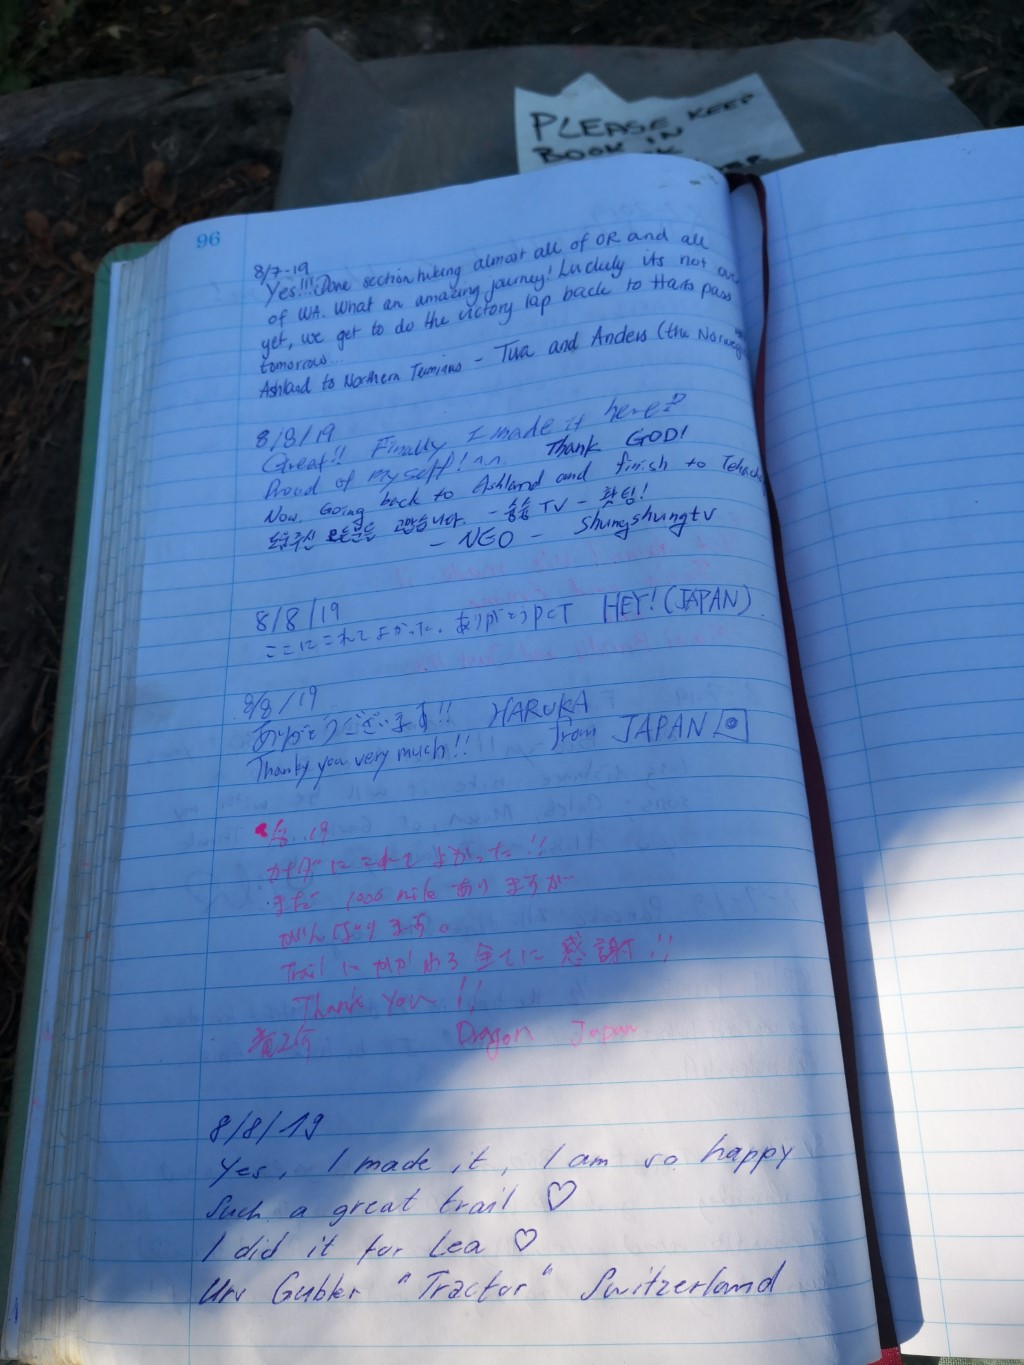 PLEASE KEEP
BOOK IN
96
8/7-19
Yes!!! Done section hiking almost all of OR and all
of WA. What an amazing journey! Luckily its not
yet, we get to do the victory lap back to Harts pass
tomorrow...
Ashland to Northern Terminus - Tua and Anders (the
8/8/19
Great!! Finally I made it here!?
Proud of myself! ^^ Thank GOD!
Now. Going back to Ashland and finish to
도와주신 모든분들 고맙습니다. - 숭숭TV - 홧팅!
- NEO - shungshungtv
8/8/19
ここにこれてよかった. ありがとうPCT HEY! (JAPAN)
8/8/19
ありがとうございます!! HARUKA
Thanky you very much!! from JAPAN
8. 19
カナダにこれてよかった!!
まだ 1000 mile ありますが
がんばります。
Trail にかかわる全てに感謝!!
Thank You!!
Dragon Japan
8/8/19
Yes, I made it, I am so happy
Such a great trail ♡
I did it for Lea ♡
Urs Gubler "Tractor" Switzerland